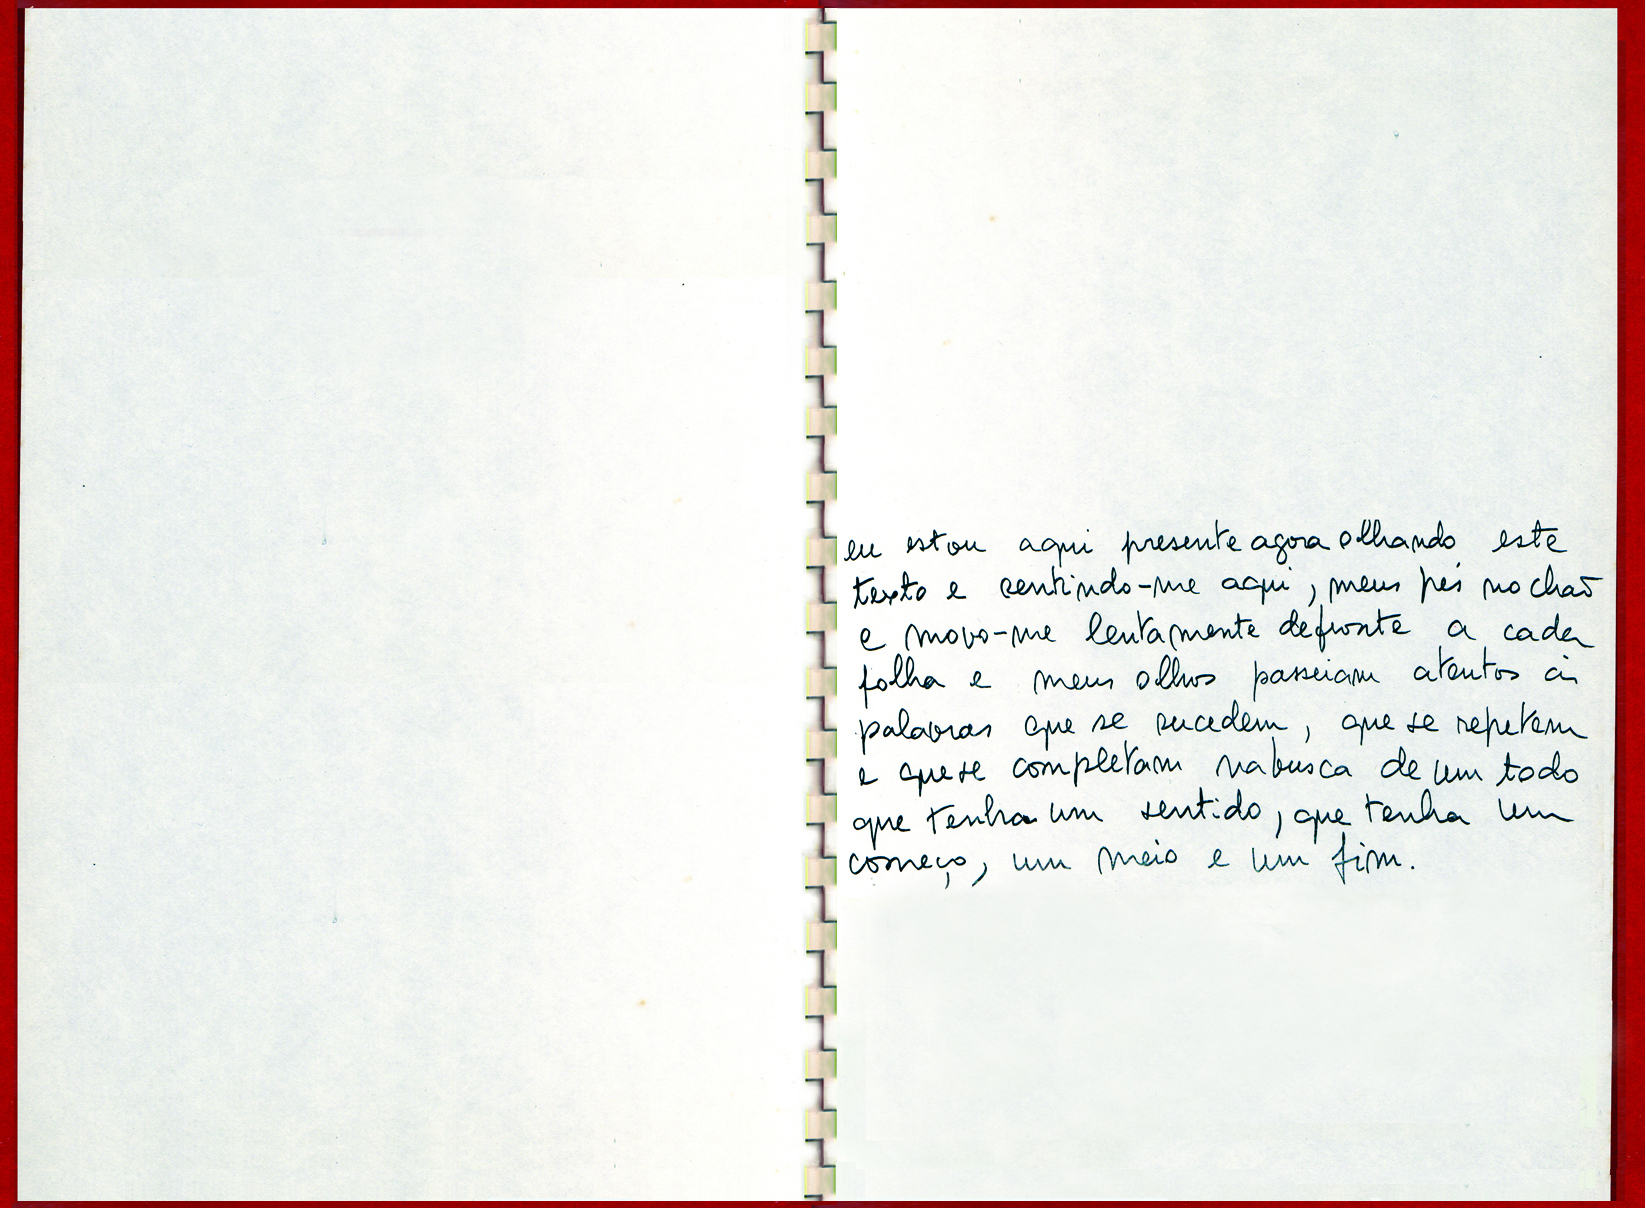 eu estou aqui presente agora olhando este
texto e sentindo-me aqui, meus pés no chão
e movo-me lentamente defronte a cada
folha e meus olhos passeiam atentos às
palavras que se sucedem, que se repetem
e que se completam na busca de um todo
que tenha um sentido, que tenha um
começo, um meio e um fim.